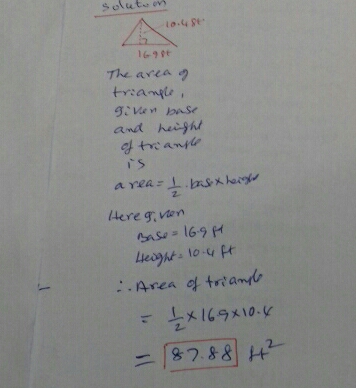 solution
10.4 ft
16.9 ft
The area of
triangle,
given base
and height
of triangle
is
area = 1/2 . base x height
Here given
Base = 16.9 ft
Height = 10.4 ft
∴ Area of triangle
= 1/2 x 16.9 x 10.4
= 87.88 ft²